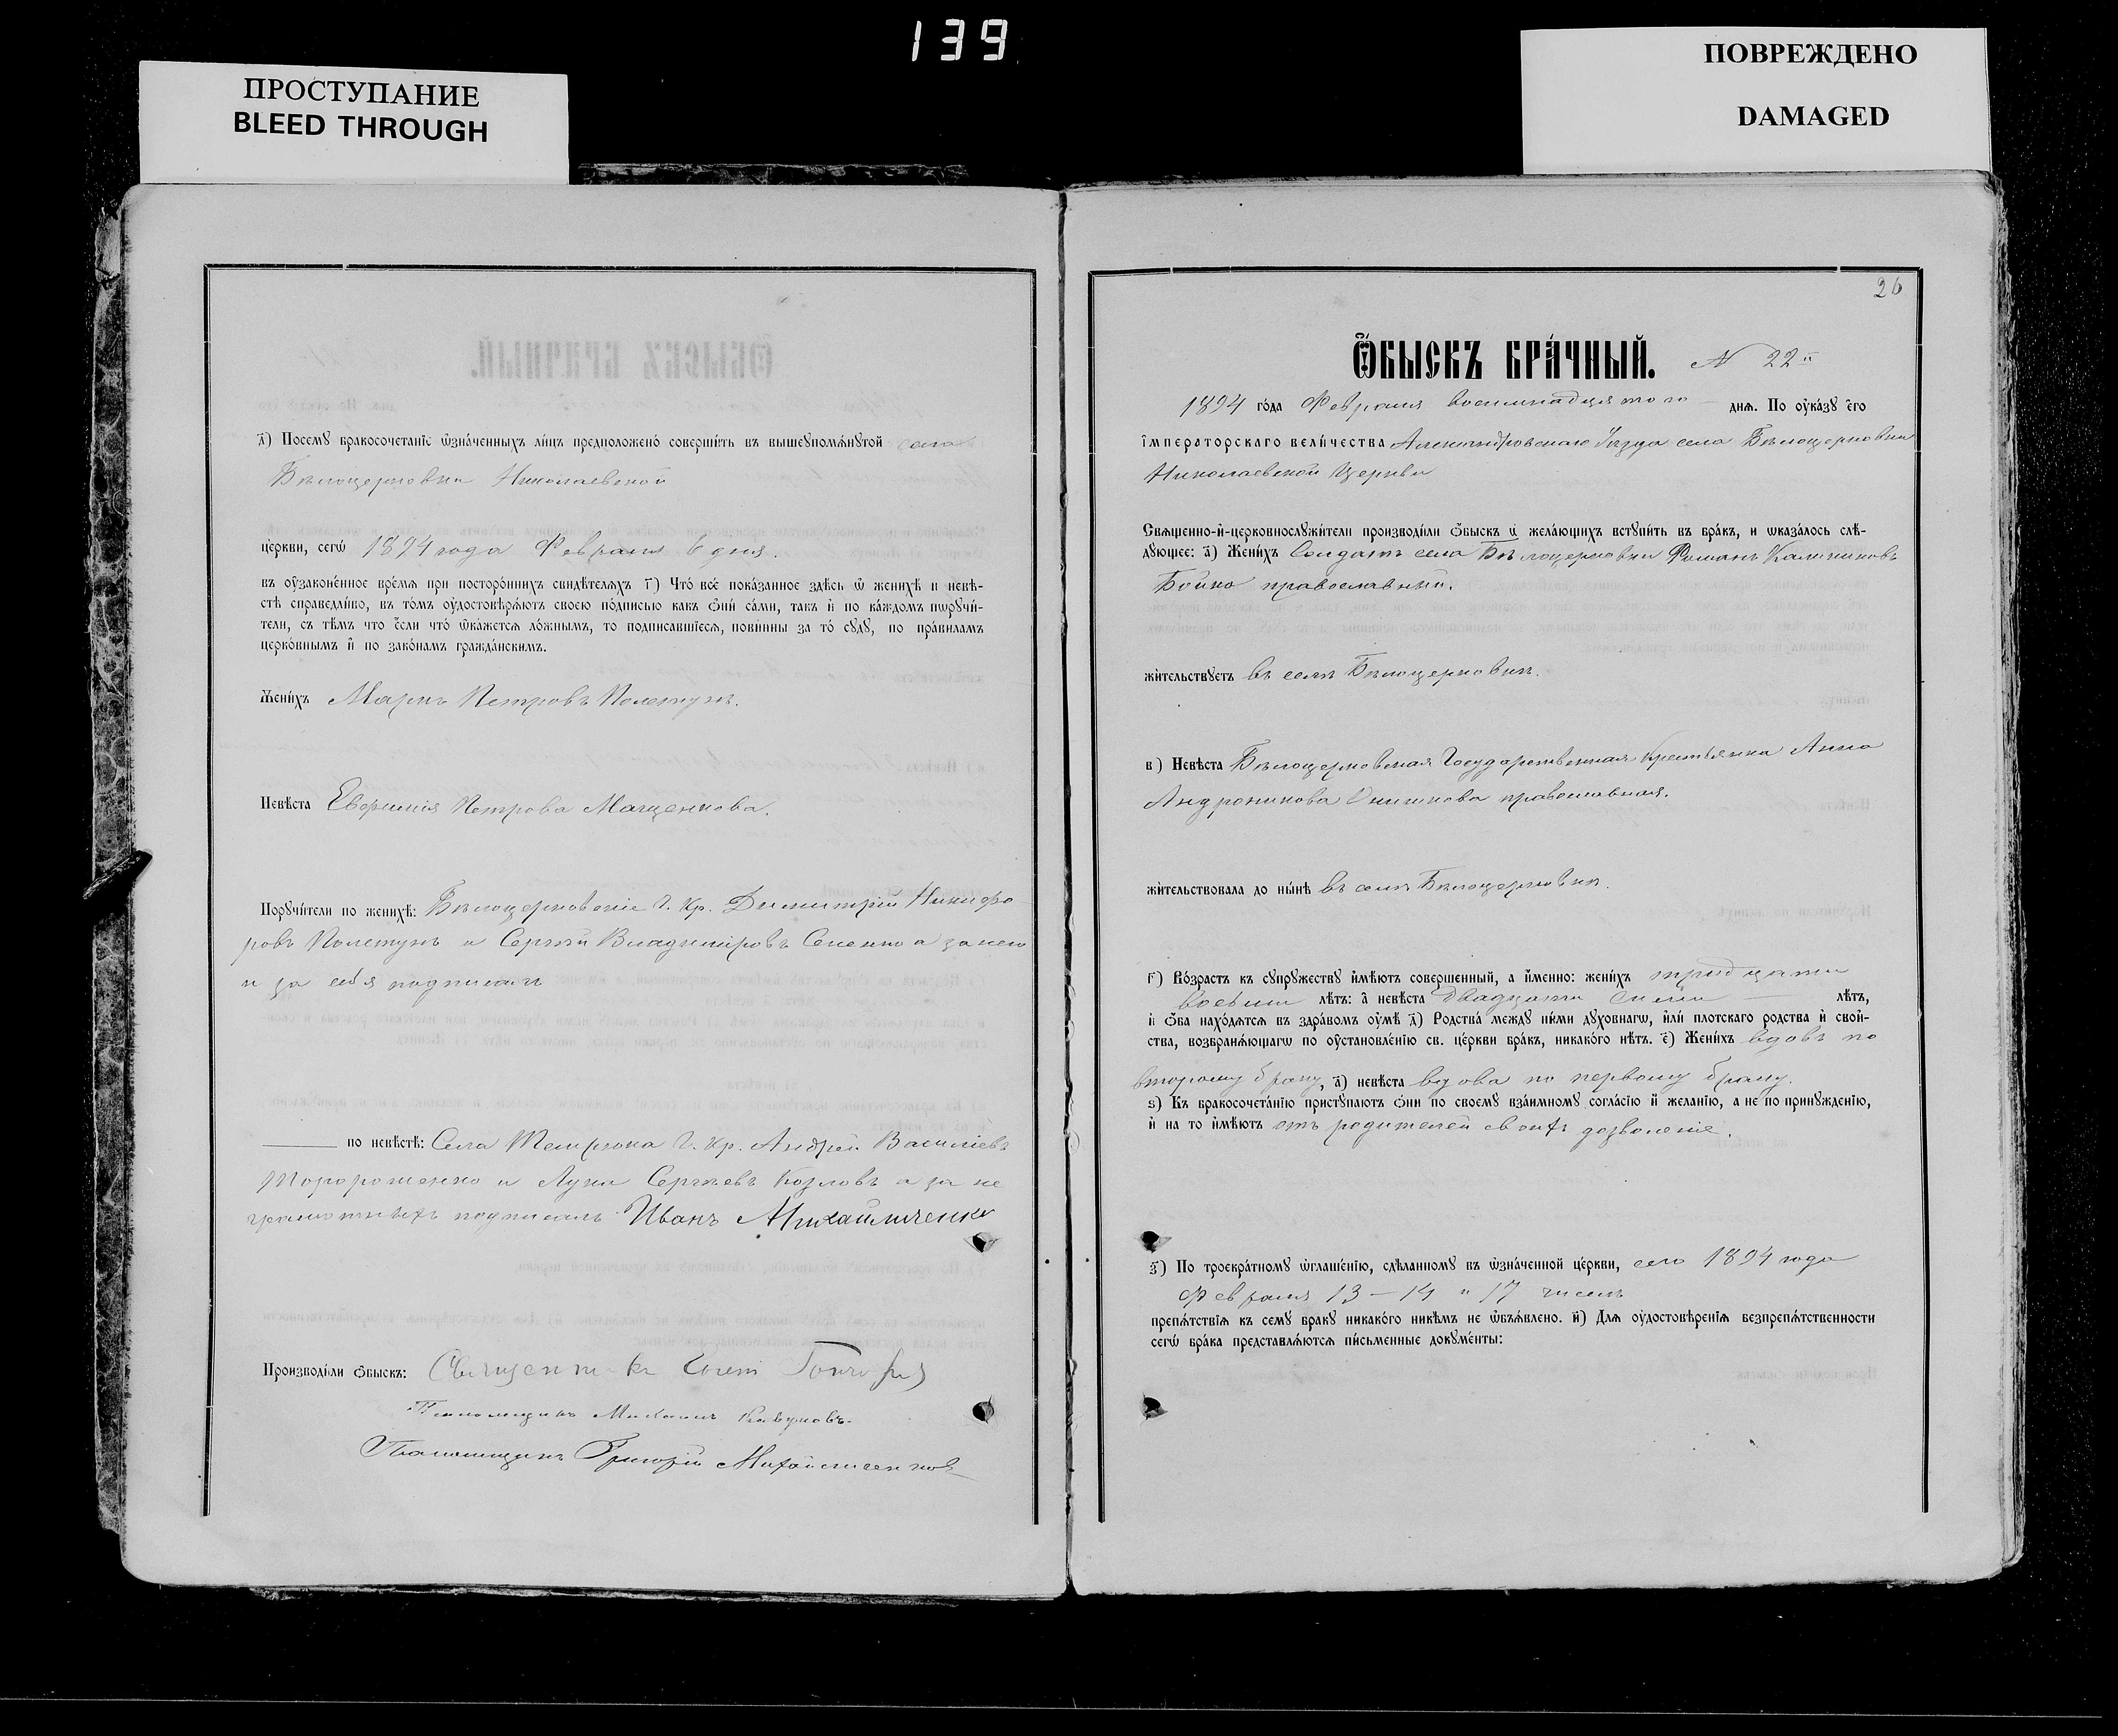 139
ПРОСТУПАНИЕ
BLEED THROUGH
ПОВРЕЖДЕНО
DAMAGED
д҃) Посемꙋ бракосочетанїе ѡзна́ченныхъ ли́цъ предположено́ соверши́ть въ вышеꙋпомѧ́нꙋтой села
Бѣлоцерковки Николаевской
це́ркви, сегѡ̀ 1894 года Февраля 6 дня.
въ оу҆зако́не́нное вре́мѧ при посторо́ннихъ свидѣ́телѧхъ г҃) Что́ все́ пока́занное здѣ́сь ѿ женихѣ̀ и невѣ́-
стѣ справедли́во, въ то́мъ оу҆достовѣрѧ́ютъ своею по́дписью какъ ѻ҆ни́ са́ми, такъ и҆ по ка́ждомъ порꙋчи́-
тели, съ тѣ́мъ что е҆́сли что́ ѿка́жетсѧ ло́жнымъ, то подписавшїесѧ, пови́нны за то́ сꙋдꙋ̀, по пра́виламъ
церко́внымъ и҆ по зако́намъ гражда́нскимъ.
Жени́хъ Маркъ Петровъ Полетухъ.
Невѣ́ста Евфимія Петрова Мащенкова.
Порꙋчи́тели по женихѣ̀: Бѣлоцерковскіе Г. Кр. Димитрій Никифо-
ровъ Полетухъ и Сергѣй Владиміровъ а за него
и за себя подписалъ
по невѣ́стѣ: Села Темрюка Г. Кр. Андрей Василіевъ
и Лука Сергѣевъ Козловъ а за не
грамотныхъ подписалъ Иванъ Михайличенко
Производи́ли ѻ҆́быскъ: Священникъ
Псаломщикъ Михаилъ
Псаломщикъ Григорій Михайличенковъ
26
Ѻ҆́БЫСКЪ БРА́ЧНЫЙ. N 22й
1894 го́да Февраля восемнадцатого дня. По оу҆ка́зꙋ є҆гѡ̀
и҆мператорскаго вели́чества Александровскаго Уѣзда села Бѣлоцерковки
Николаевской Церкви
Свѧщенно-и҆-церковнослꙋжи́тели производи́ли ѻ҆́быскъ ѡ҆ жела́ющихъ встꙋпи́ть въ бра́къ, и ѡказа́лось слѣ́-
дꙋющее: а҃) Жени́хъ Солдатъ села Бѣлоцерковки Романъ Калиниковъ
Бойко православный.
жи́тельствꙋетъ въ селѣ Бѣлоцерковкѣ.
в҃) Невѣ́ста Бѣлоцерковская Государственная Крестьянка Анна
Андроникова православная.
жи́тельствовала до ны́нѣ въ селѣ Бѣлоцерковкѣ.
г҃) Во́зрастъ къ сꙋпрꙋжествꙋ и҆мѣ́ютъ совершенный, а и҆́менно: жени́хъ тридцати
восьми лѣ́тъ: а҆ невѣ́ста двадцати семи лѣ́тъ,
и҆ ѻ҆́ба нахо́дѧтсѧ въ здра́вомъ оу҆мѣ̀ д҃) Родства̀ междꙋ ни́ми дꙋхо́внагѡ, и҆лѝ плотскаго родства и҆ свой-
ства, возбранѧ́ющагѡ по оу҆становле́нїю св. це́ркви бра́къ, никако́го нѣ́тъ. е҃) Жени́хъ вдовъ по
второму браку, а҃) невѣ́ста вдова по первому браку.
ѕ҃) Къ бракосочета́нїю пристꙋпа́ютъ ѻ҆нѝ по своемꙋ̀ взаи́мномꙋ согла́сїю и҆ желанїю, а не по принꙋждению,
и҆ на то и҆мѣ́ютъ отъ родителей своихъ дозволеніе.
з҃) По троекра́тномꙋ ѡ҆глаше́нїю, сдѣ́ланномꙋ въ ѡ҆зна́ченной це́ркви, сего 1894 года
Февраля 13 – 14 и 17 чиселъ
препѧ́тствїѧ къ семꙋ̀ бракꙋ никако́го никѣ́мъ не ѡ҆бъѧ́влено. и҃) Длѧ оу҆достовѣ́ренїѧ безпрепѧ́тственности
сегѡ̀ бра́ка представлѧ́ютсѧ пи́сьменные докꙋме́нты: